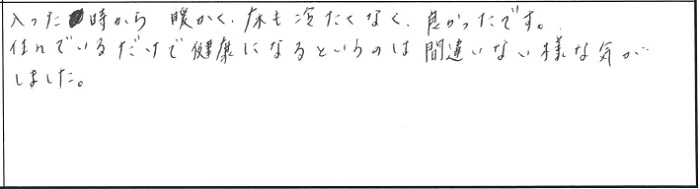 入った時から 暖かく、床も冷たくなく、良かったです。
住んでいるだけで健康になるというのは間違いない様な気が
しました。